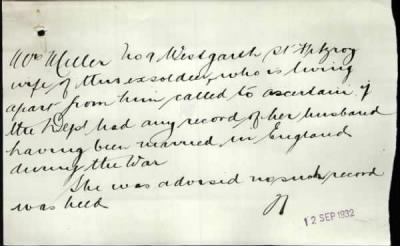 Mrs Miller No 9 Westgarth St Fitzroy
wife of this exsoldier, who is living
apart from him called to ascertain if
the Dept had any record of her husband
having been married in England
during the War
She was advised no such record
was held
12 SEP 1932